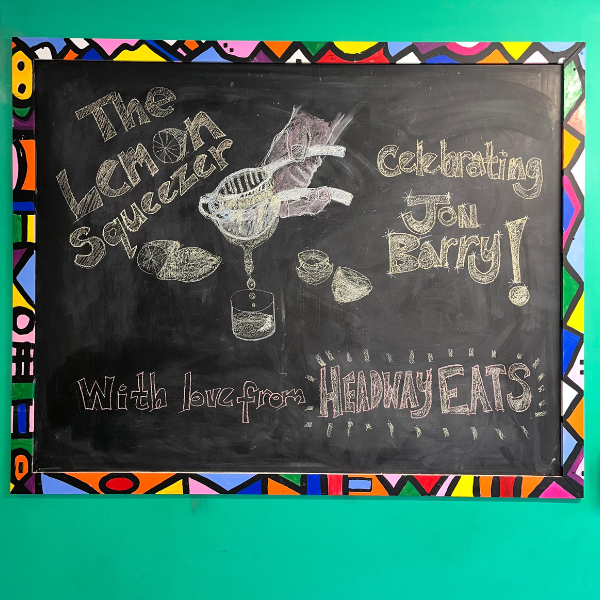 The
Lemon
Squeezer
Celebrating
Jon
Barry!
With love from HEADWAY EATS